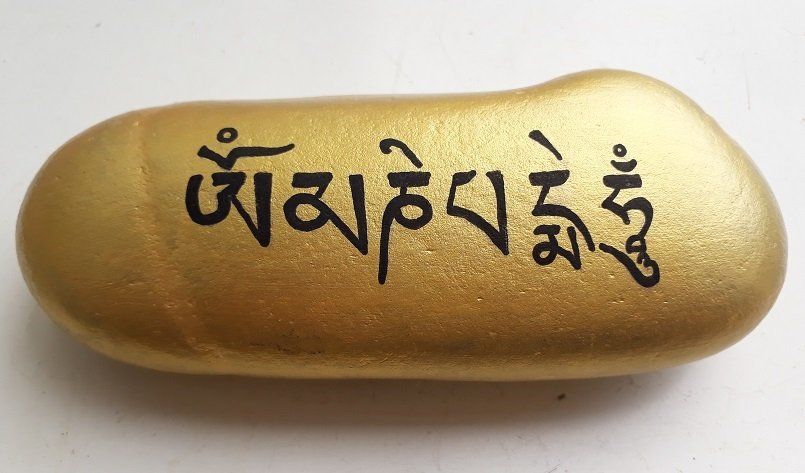 ཨོཾ མ ཎི པ དྨེ ཧཱུྃ